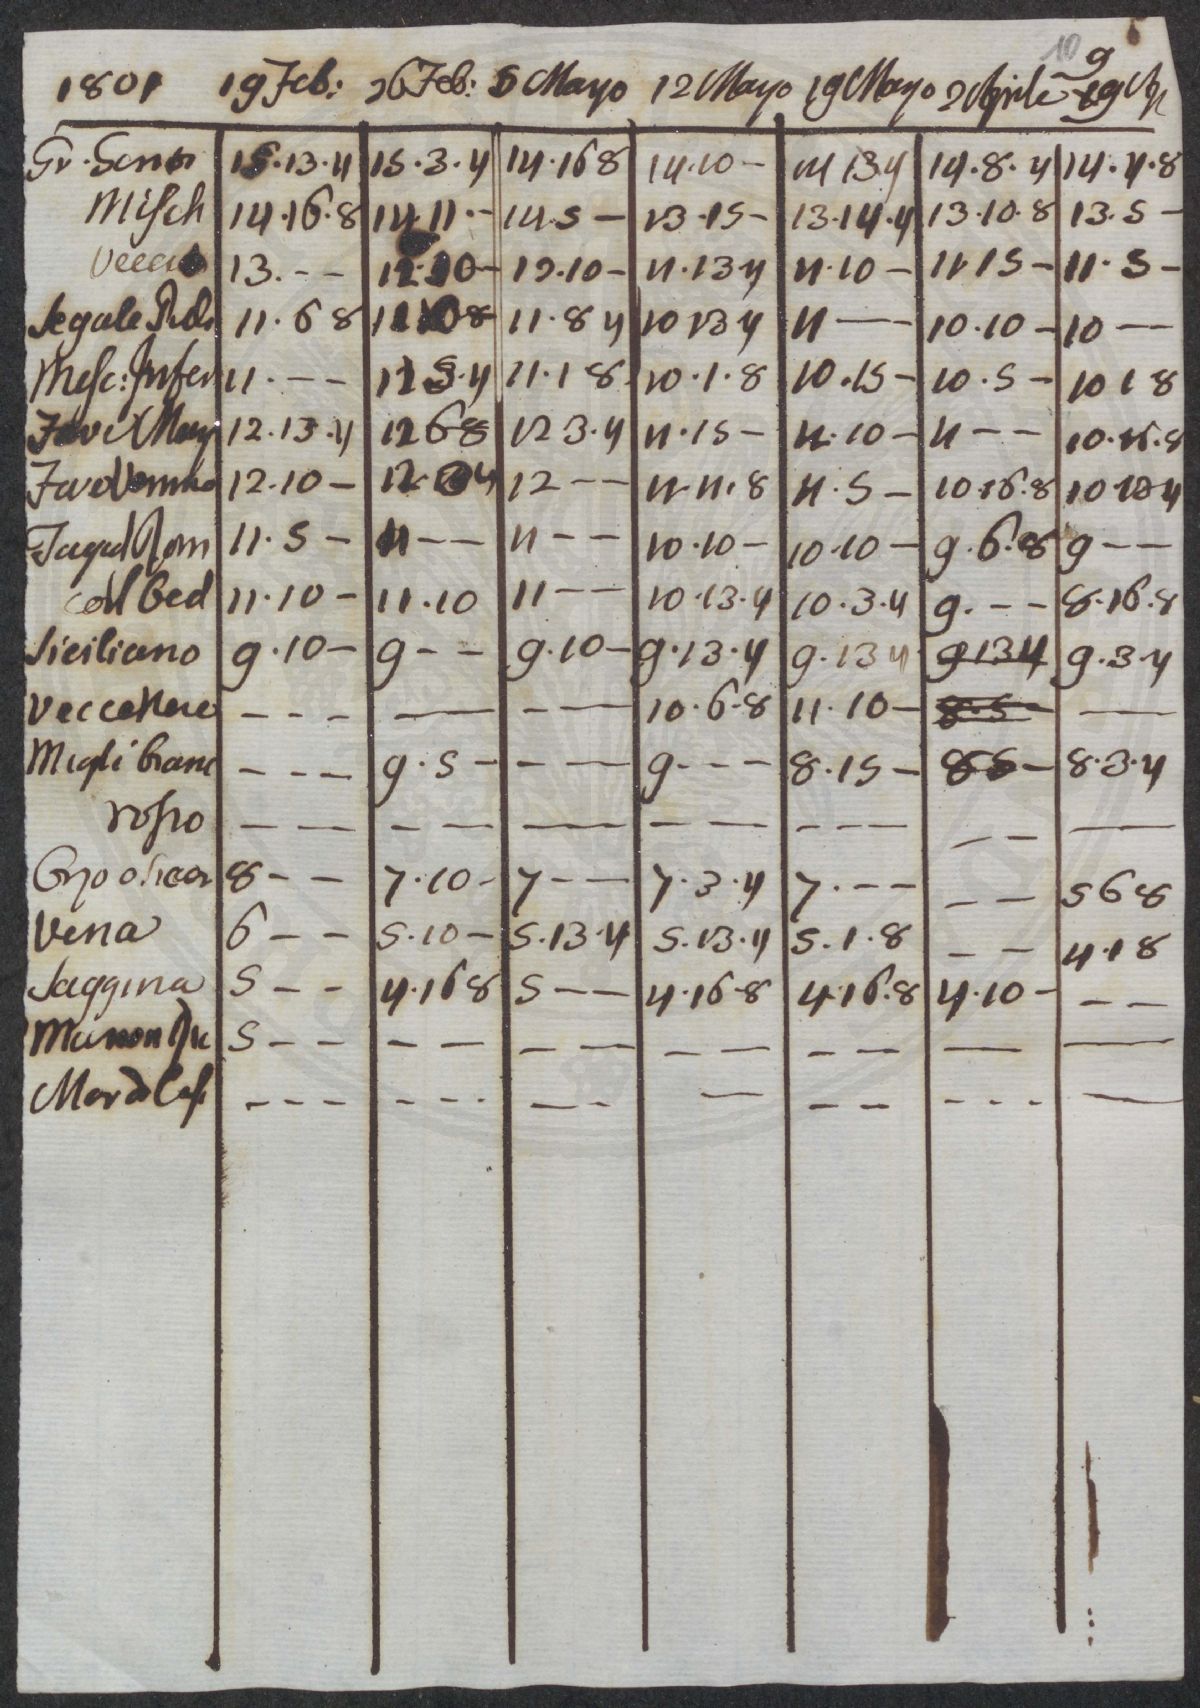 10
1801 19 Feb: 26 Feb: 5 Mayo 12 Mayo 19 Mayo 2 Aprile 9
Gr. 15.13.4 15.3.4 14.16 8 14.10- 14 13 4 14.8.4 14.4.8
Misch 14.16.8 14 11.- 14.5- 13.15- 13.14.4 13.10.8 13.5-
13.-- 12.10- 12.10- 11.13 4 11.10- 11 15- 11.5-
Segale 11.6 8 11.8 4 10 13 4 11-- 10.10- 10--
Mesc: Infer 11.-- 11.1 8 10.1.8 10.15- 10.5- 10 1 8
Fave 12.13.4 12 6 8 12 3.4 11.15- 11.10- 11-- 10.16.8
Fave 12.10- 12-- 11.11.8 11.5- 10.16.8 10 13 4
11.5- 11-- 11-- 10.10- 10.10- 9.6.8 9--
11.10- 11.10 11-- 10.13.4 10.3.4 9.-- 8.16.8
Siciliano 9.10- 9-- 9.10- 9.13.4 9.13 4 9 13 4 9.3.4
Vecce Nere --- -- -- 10.6.8 11.10- 8.5- --
Migli --- 9.5- --- 9--- 8.15- 8 5- 8.3.4
rosso --- --- --- --- --- -- --
Orzo 8-- 7.10- 7-- 7.3.4 7.-- -- 5 6 8
Vena 6-- 5.10- 5.13.4 5.13.4 5.1.8 -- 4.1 8
Saggina 5-- 4.16 8 5-- 4.16.8 4.16.8 4.10- --
5-- -- -- -- -- -- --
--- --- -- -- -- --- --